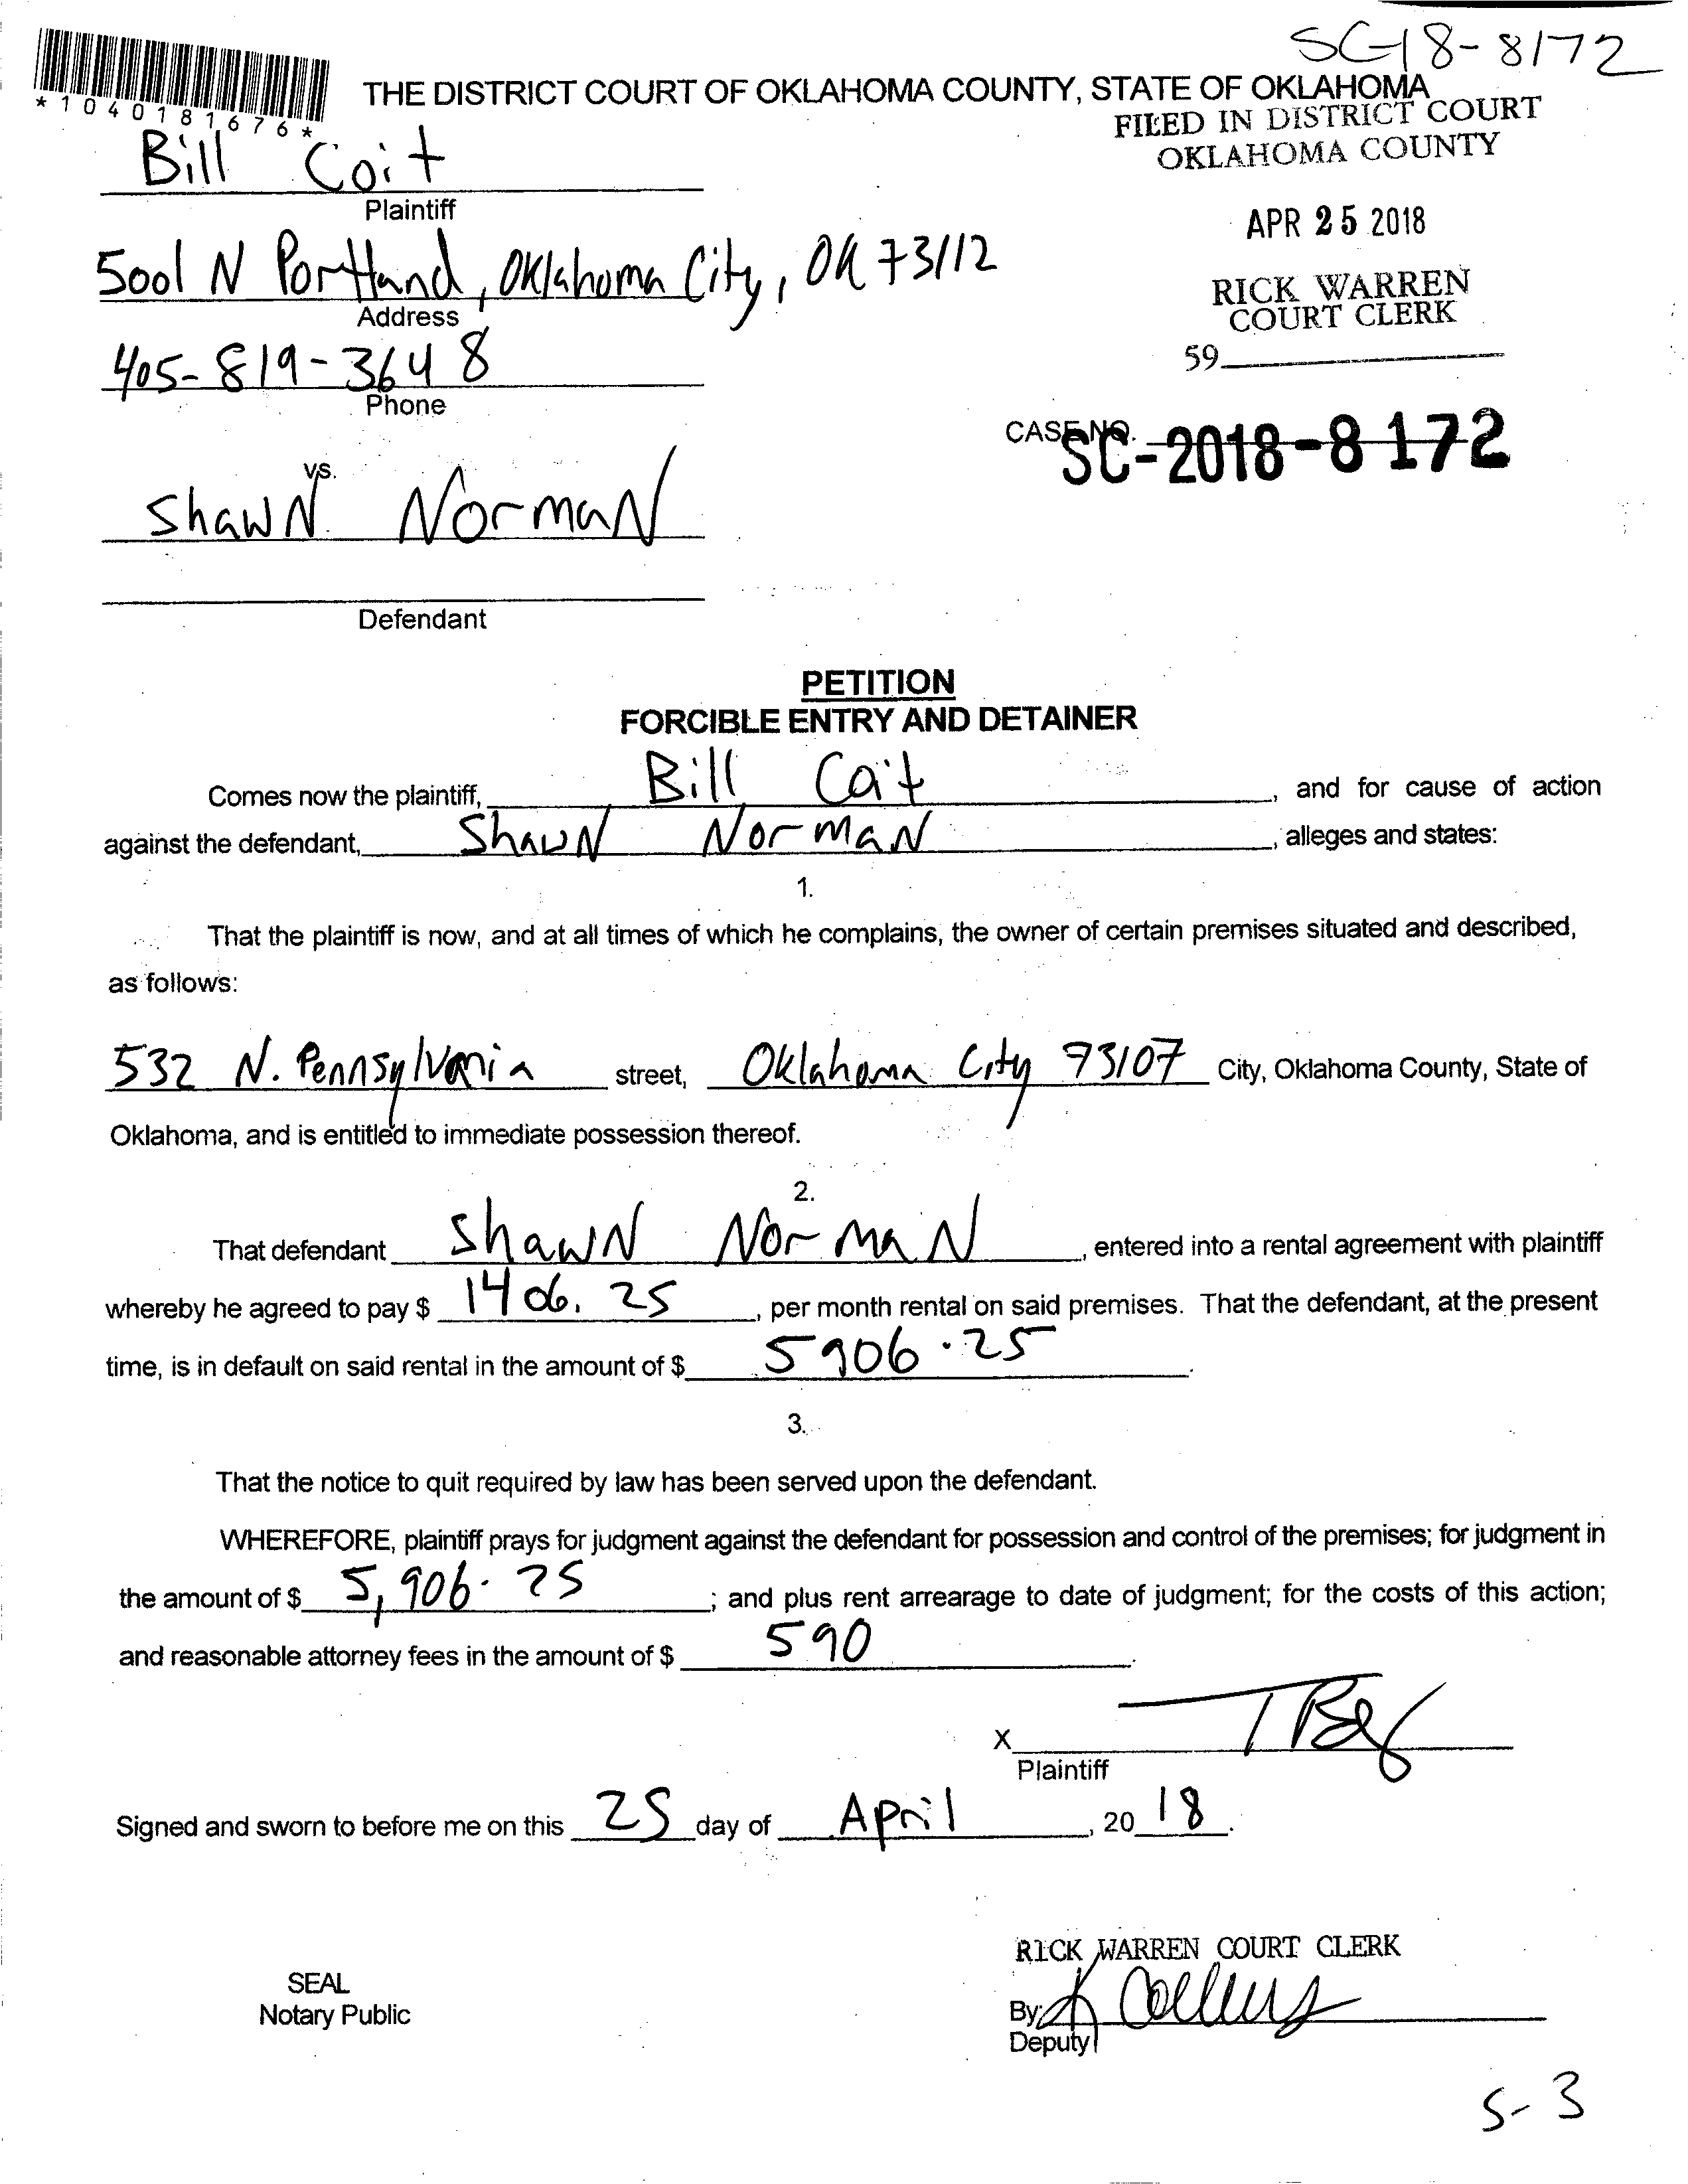 SC-18-8172
*1040181676*
THE DISTRICT COURT OF OKLAHOMA COUNTY, STATE OF OKLAHOMA
FILED IN DISTRICT COURT
OKLAHOMA COUNTY
Bill Coit
Plaintiff
APR 25 2018
5001 N Portland, Oklahoma City, OK 73112
Address
RICK WARREN
COURT CLERK
405-819-3648
Phone
59
CASE NO. SC-2018-8172
vs.
Shawn Norman
Defendant
PETITION
FORCIBLE ENTRY AND DETAINER
Comes now the plaintiff, Bill Coit, and for cause of action
against the defendant, Shawn Norman, alleges and states:
1.
That the plaintiff is now, and at all times of which he complains, the owner of certain premises situated and described,
as follows:
532 N. Pennsylvania street, Oklahoma City 73107 City, Oklahoma County, State of
Oklahoma, and is entitled to immediate possession thereof.
2.
That defendant Shawn Norman, entered into a rental agreement with plaintiff
whereby he agreed to pay $ 1406.25, per month rental on said premises. That the defendant, at the present
time, is in default on said rental in the amount of $ 5906.25.
3.
That the notice to quit required by law has been served upon the defendant.
WHEREFORE, plaintiff prays for judgment against the defendant for possession and control of the premises; for judgment in
the amount of $ 5,906.25; and plus rent arrearage to date of judgment; for the costs of this action;
and reasonable attorney fees in the amount of $ 590.
X
Plaintiff
Signed and sworn to before me on this 25 day of April, 2018.
RICK WARREN COURT CLERK
SEAL
Notary Public
By: K Collins
Deputy
5-3